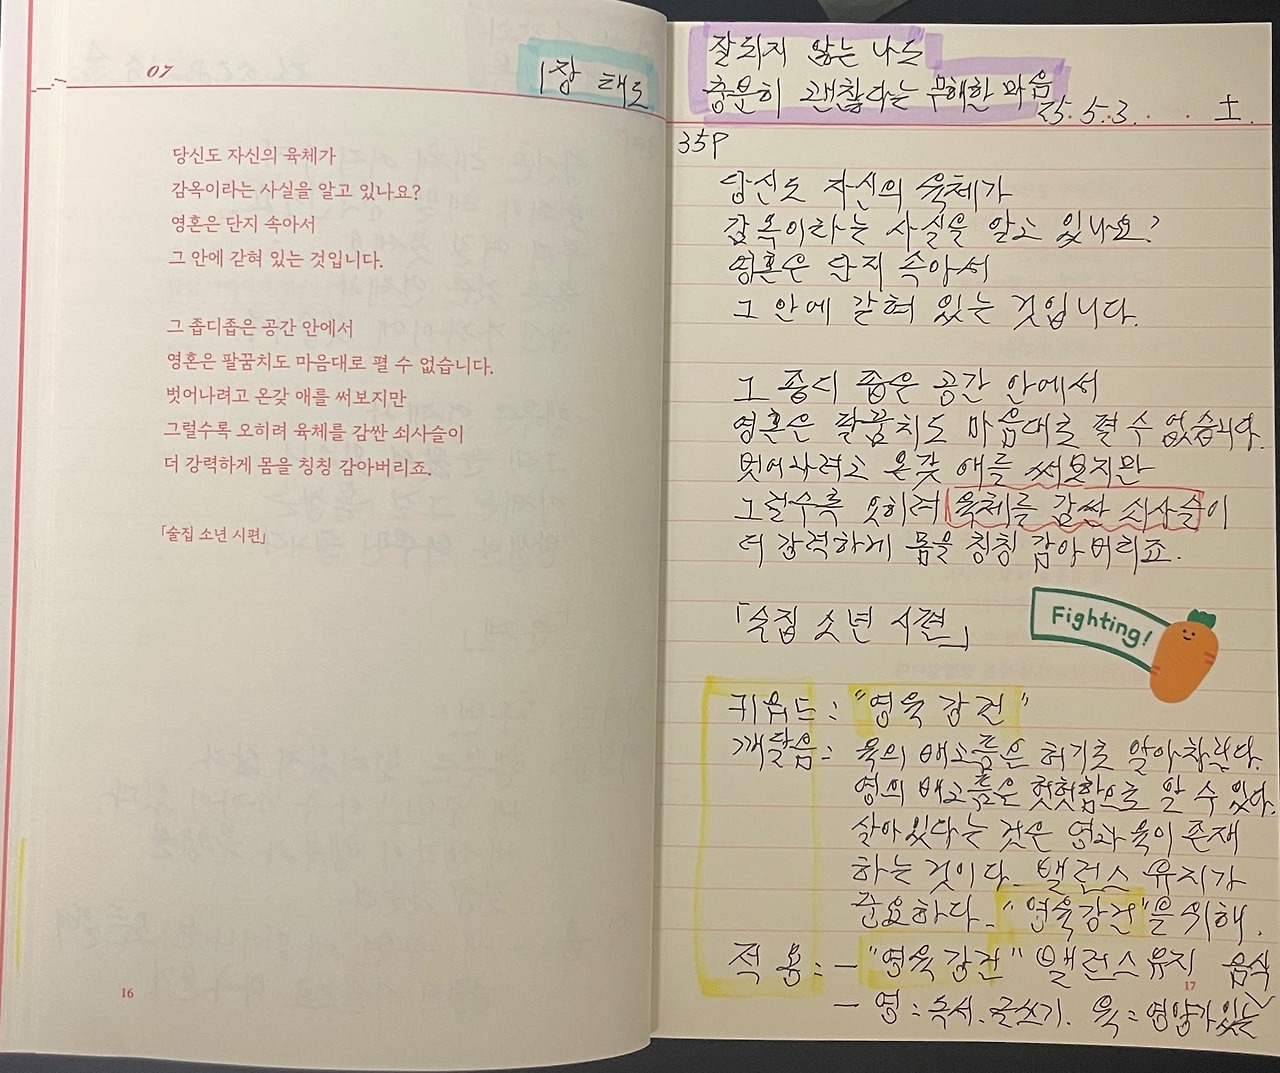 07
1장 태도
당신도 자신의 육체가
감옥이라는 사실을 알고 있나요?
영혼은 단지 속아서
그 안에 갇혀 있는 것입니다.
그 좁디좁은 공간 안에서
영혼은 팔꿈치도 마음대로 펼 수 없습니다.
벗어나려고 온갖 애를 써보지만
그럴수록 오히려 육체를 감싼 쇠사슬이
더 강력하게 몸을 칭칭 감아버리죠.
「술집 소년 시편」
16
잘되지 않는 나도
충분히 괜찮다는 무해한 마음
25. 5. 3. 土.
35P
당신도 자신의 육체가
감옥이라는 사실을 알고 있나요?
영혼은 단지 속아서
그 안에 갇혀 있는 것입니다.
그 좁디 좁은 공간 안에서
영혼은 팔꿈치도 마음대로 펼 수 없습니다.
벗어나려고 온갖 애를 써보지만
그럴수록 오히려 육체를 감싼 쇠사슬이
더 강력하게 몸을 칭칭 감아버리죠.
「술집 소년 시편」
Fighting!
키워드 : "영육 강건"
깨달음 : 육의 배고픔은 허기로 알아차린다.
영의 배고픔은 헛헛함으로 알 수 있다.
살아있다는 것은 영과 육이 존재
하는 것이다. 밸런스 유지가
중요하다. "영육강건"을 위해.
적 용 : - "영육 강건" 밸런스 유지 음식
17
- 영 : 독서. 글쓰기. 육 : 영양가 있는